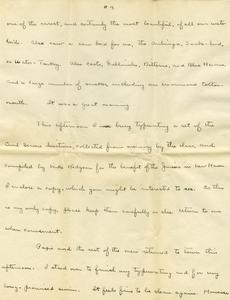 # 2
one of the rarest, and certainly the most beautiful, of all our water
birds. Also saw a new bird for me, the Anhinga, Snake-bird,
or Water-Turkey. Also Coots, Gallinules, Bitterns, and Blue Herons
and a large number of snakes including one moccasin cotton-
mouth. It was a great morning
This afternoon I busy typewriting a set of the
and Science questions, collected from memory by the class, and
compiled by Mrs Hodgson for the benefit of the Juniors in New Haven
I enclose a copy, which you might be interested to see. As this
is my only copy, please keep them carefully or else return to me
when convenient.
and the rest of the men returned to town this
afternoon. I stayed over to finish my typewriting and for my
long-promised swim. It feels fine to be clean again. However